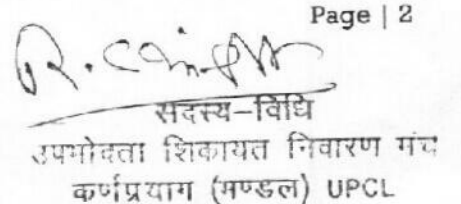 Page | 2
सदस्य–विधि
उपभोक्ता शिकायत निवारण मंच
कर्णप्रयाग (मण्डल) UPCL